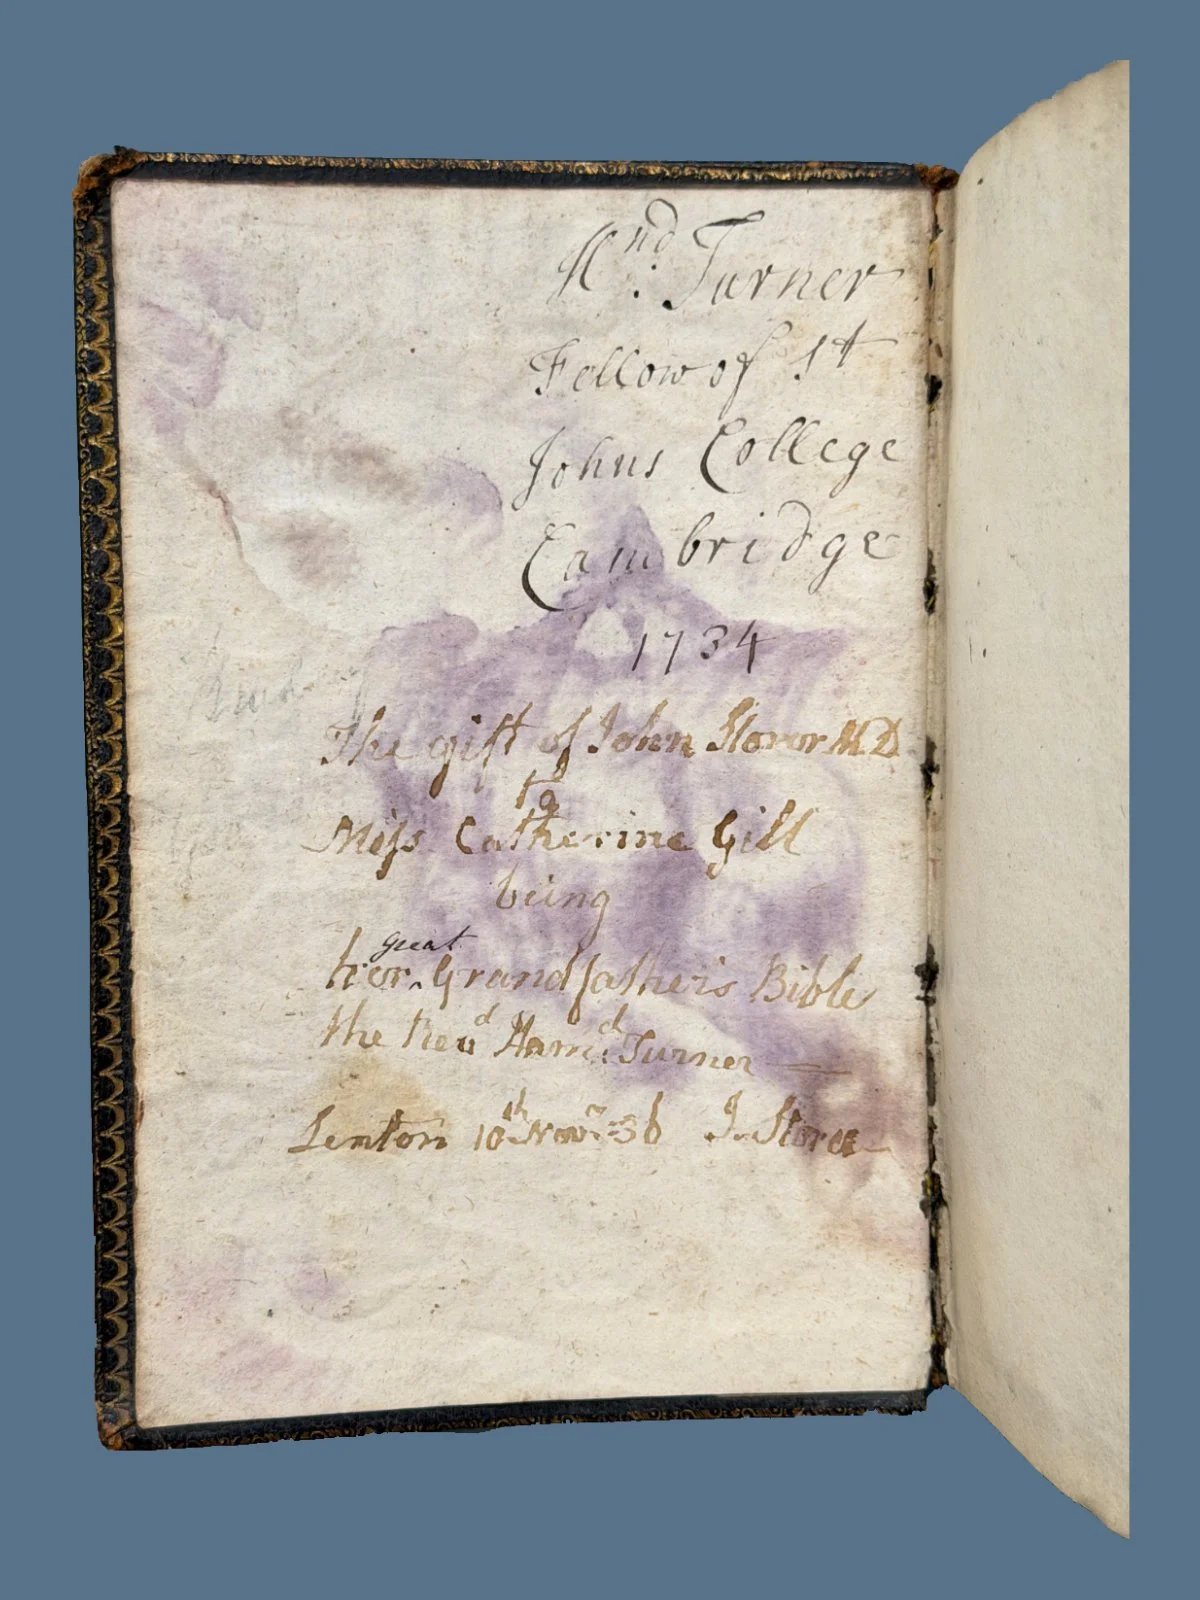 H.nd Turner
Fellow of St
Johns College
Cambridge
1734
The gift of John Storer M D
to
Miss Catherine Gill
being
her great Grandfather's Bible
the Revd Hamd Turner
Lenton 10th Novr 36 J. Storer